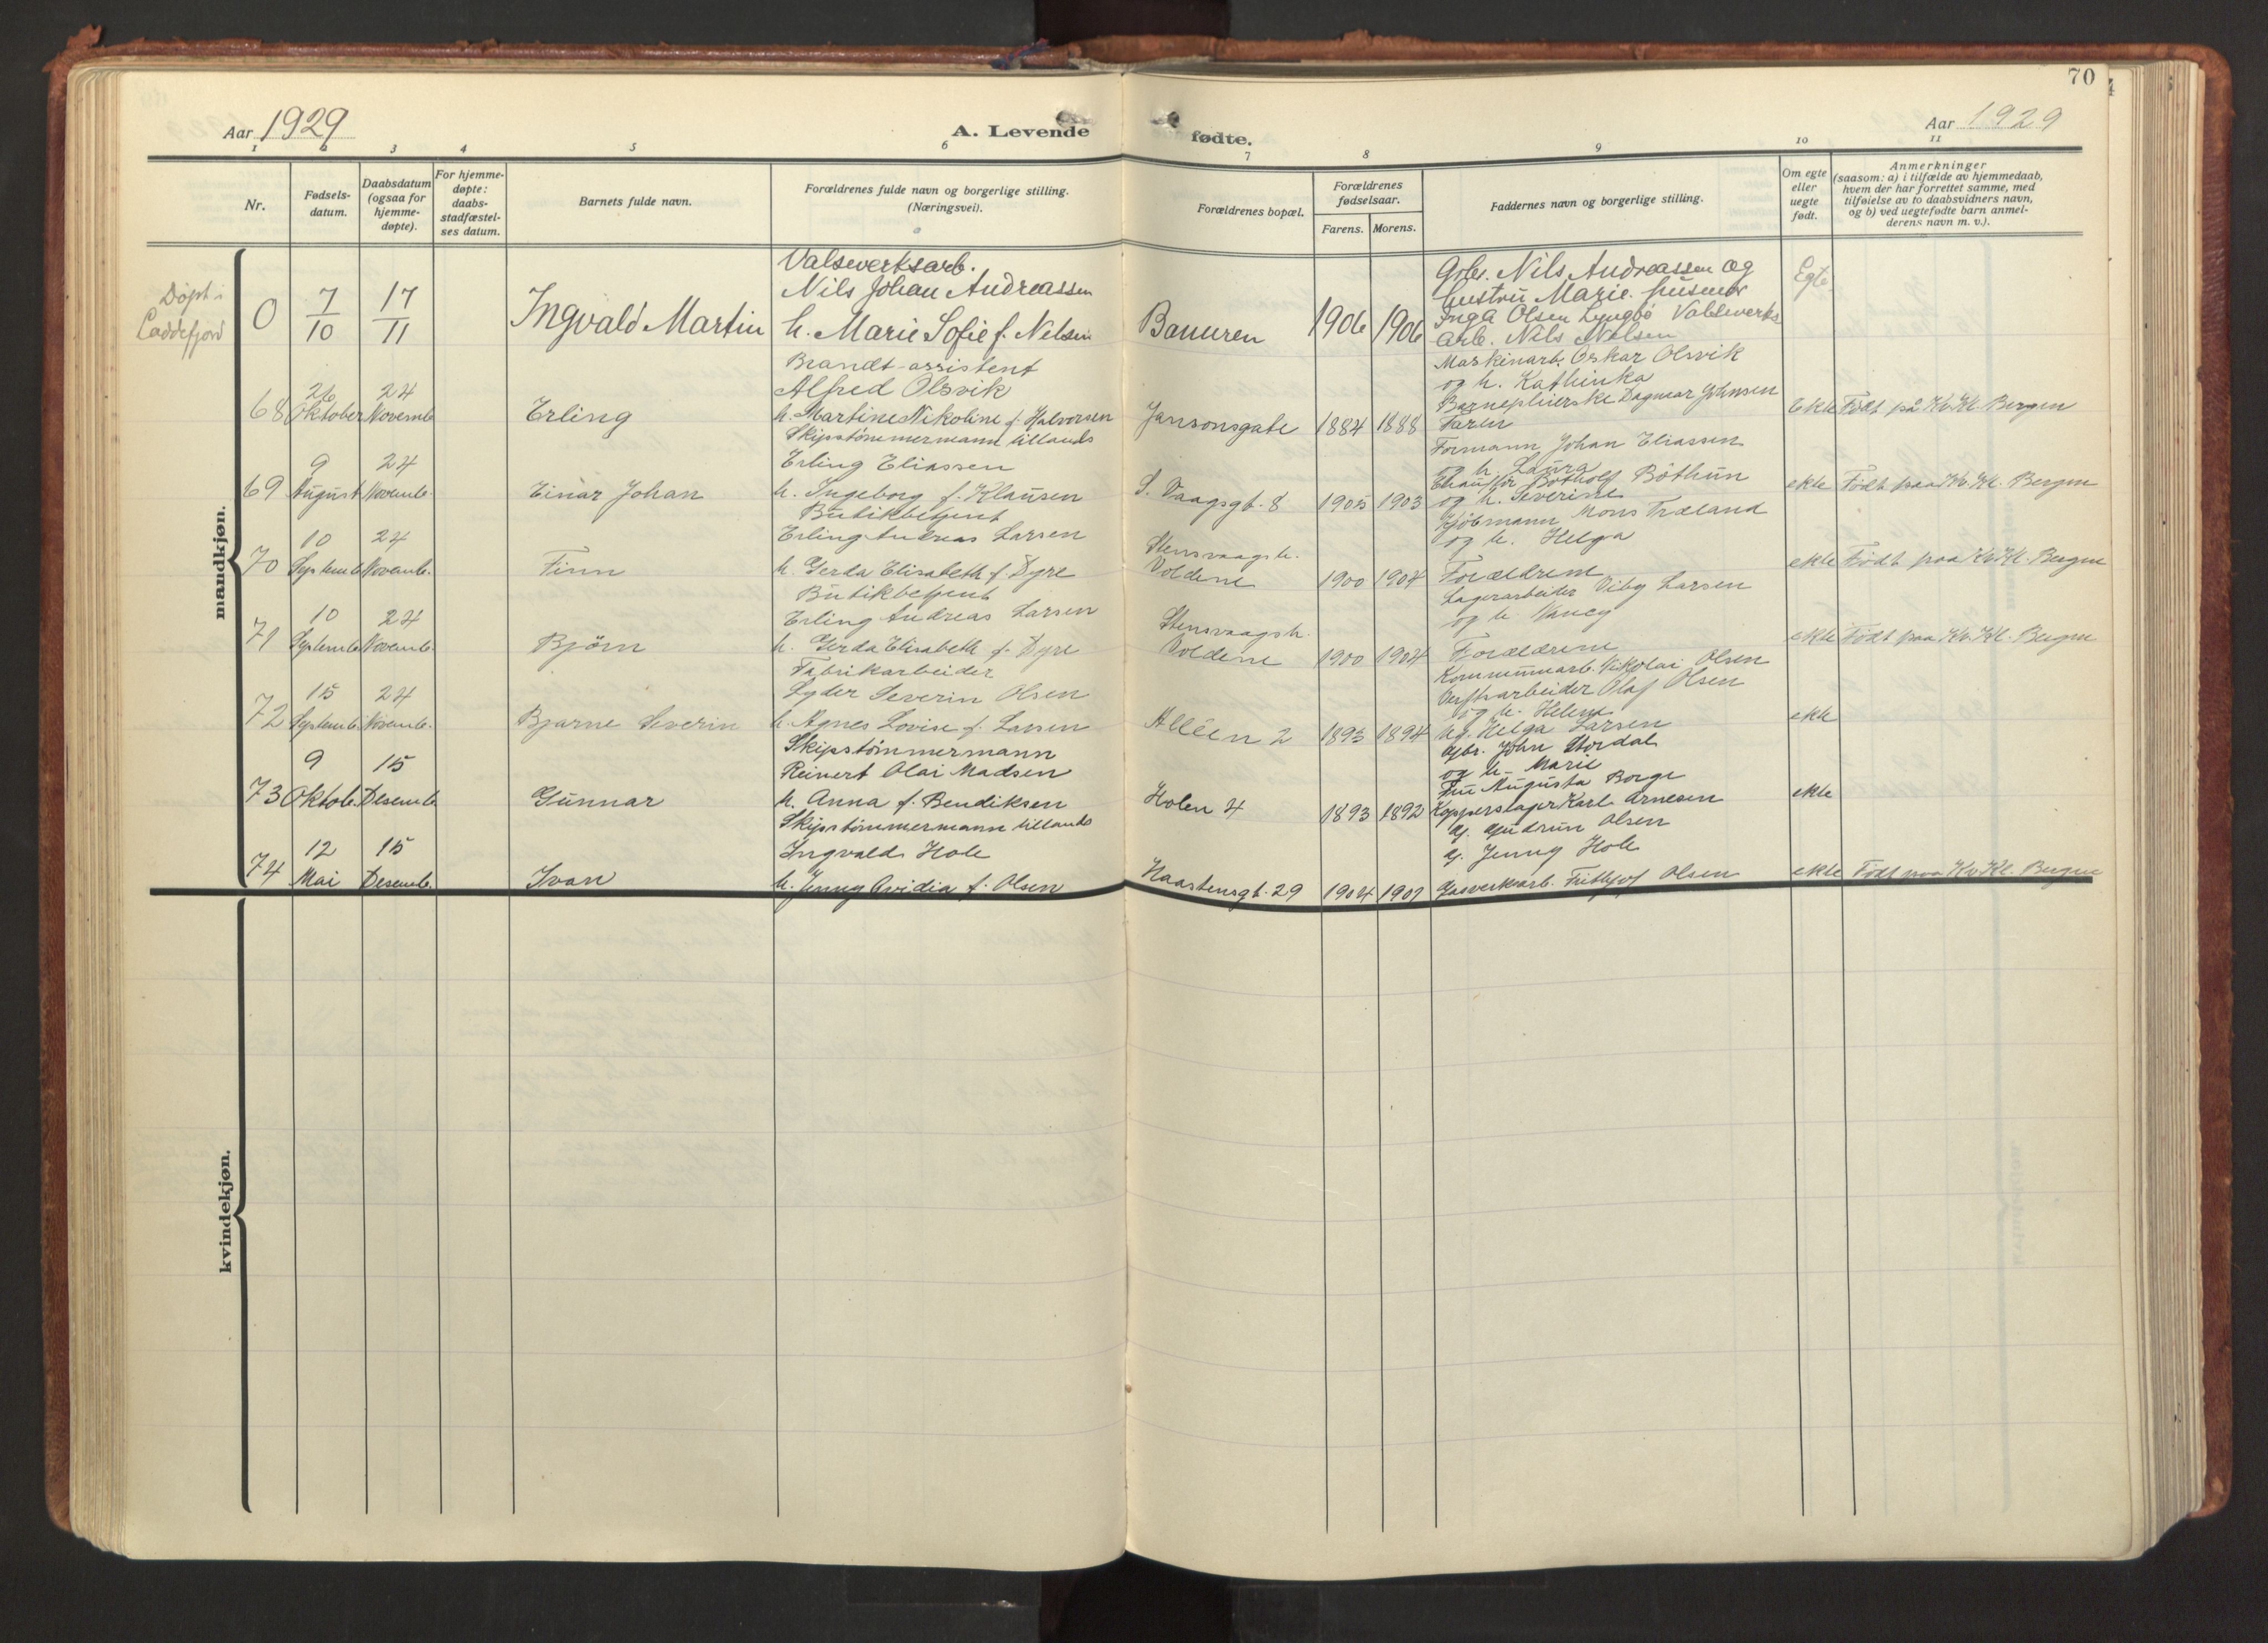 70
Aar 1929
A. Levende
fødte.
Aar 1929
1 2 3 4 5 6 7 8 9 10 11
Nr.
Fødsels-
datum.
Daabsdatum
(ogsaa for
hjemme-
døpte).
For hjemme-
døpte:
daabs-
stadfæstel-
ses datum.
Barnets fulde navn.
Forældrenes fulde navn og borgerlige stilling.
(Næringsvei).
Forældrenes bopæl.
Forældrenes
fødselsaar.
Farens. Morens.
Faddernes navn og borgerlige stilling.
Om egte
eller
uegte
født.
Anmerkninger
(saasom: a) i tilfælde av hjemmedaab,
hvem der har forrettet samme, med
tilføielse av to daabsvidners navn,
og b) ved uegtefødte barn anmel-
derens navn m. v.).
mandkjøn.
Døpt i
Laddefjord
0
7
10
17
11
Ingvald Martin
Valseverksarb.
Nils Johan Andreassen
h. Marie Sofie f. Nelsen
1906 1906
Nils Andreassen og
hustru Marie.
Inga Olsen Lyngbø Valseverks
arb. Nils Nelsen
Egte
68
26
Oktober
24
Novemb.
Erling
Brandt-assistent
Alfred Olsvik
h. Martine Nikoline f. Halvorsen
Jansonsgate
1884 1888
Maskinarb. Oskar Olsvik
og h. Kathinka
Barnepleierske Dagmar Johnsen
Faren
Ekte
Født på Kv. Kl. Bergen
69
9
August
24
Novemb.
Einar Johan
Skipstømmermann tillands
Erling Eliassen
h. Ingeborg f. Klausen
S. Vaagsgt. 8
1905 1903
Formann Johan Eliassen
og h. Laura
Chauffør Botholf Bøthun
og h. Severine
ekte
Født paa Kv. Kl. Bergen
70
10
Septemb.
24
Novemb.
Finn
Butikbetjent
Erling Andreas Larsen
h. Gerda Elisabeth f. Dyre
Voldene
1900 1904
Kjøbmann Mons Træland
og h. Helga
Forældrene
ekte
Født paa Kv. Kl. Bergen
71
10
Septemb.
24
Novemb.
Bjørn
Butikbetjent
Erling Andreas Larsen
h. Gerda Elisabeth f. Dyre
Voldene
1900 1904
Lagerarbeider Viby Larsen
og h. Nancy
Forældrene
ekte
Født paa Kv. Kl. Bergen
72
15
Septemb.
24
Novemb.
Bjarne Severin
Fabrikarbeider
Lyder Severin Olsen
h. Agnes Lovise f. Larsen
Alléen 2
1893 1894
Kommunearb. Nikolai Olsen
Verftsarbeider Olaf Olsen
og h. Helene
Helga Larsen
ekte
73
9
Oktob.
15
Desemb.
Gunnar
Skipstømmermann
Reinert Olai Madsen
h. Anna f. Bendiksen
Holen 4
1893 1892
John Stordal
og h. Marie
Fru Augusta Borge
Kopperslager Karl Arnesen
ekte
74
12
Mai
15
Desemb.
Ivan
Skipstømmermann tillands
Ingvald Hole
h. Jenny Ovidia f. Olsen
Haastensgt. 29
1904 1907
Gudrun Olsen
Jenny Hole
Gasverksarb. Frithjof Olsen
ekte
Født paa Kv. Kl. Bergen
kvindekjøn.